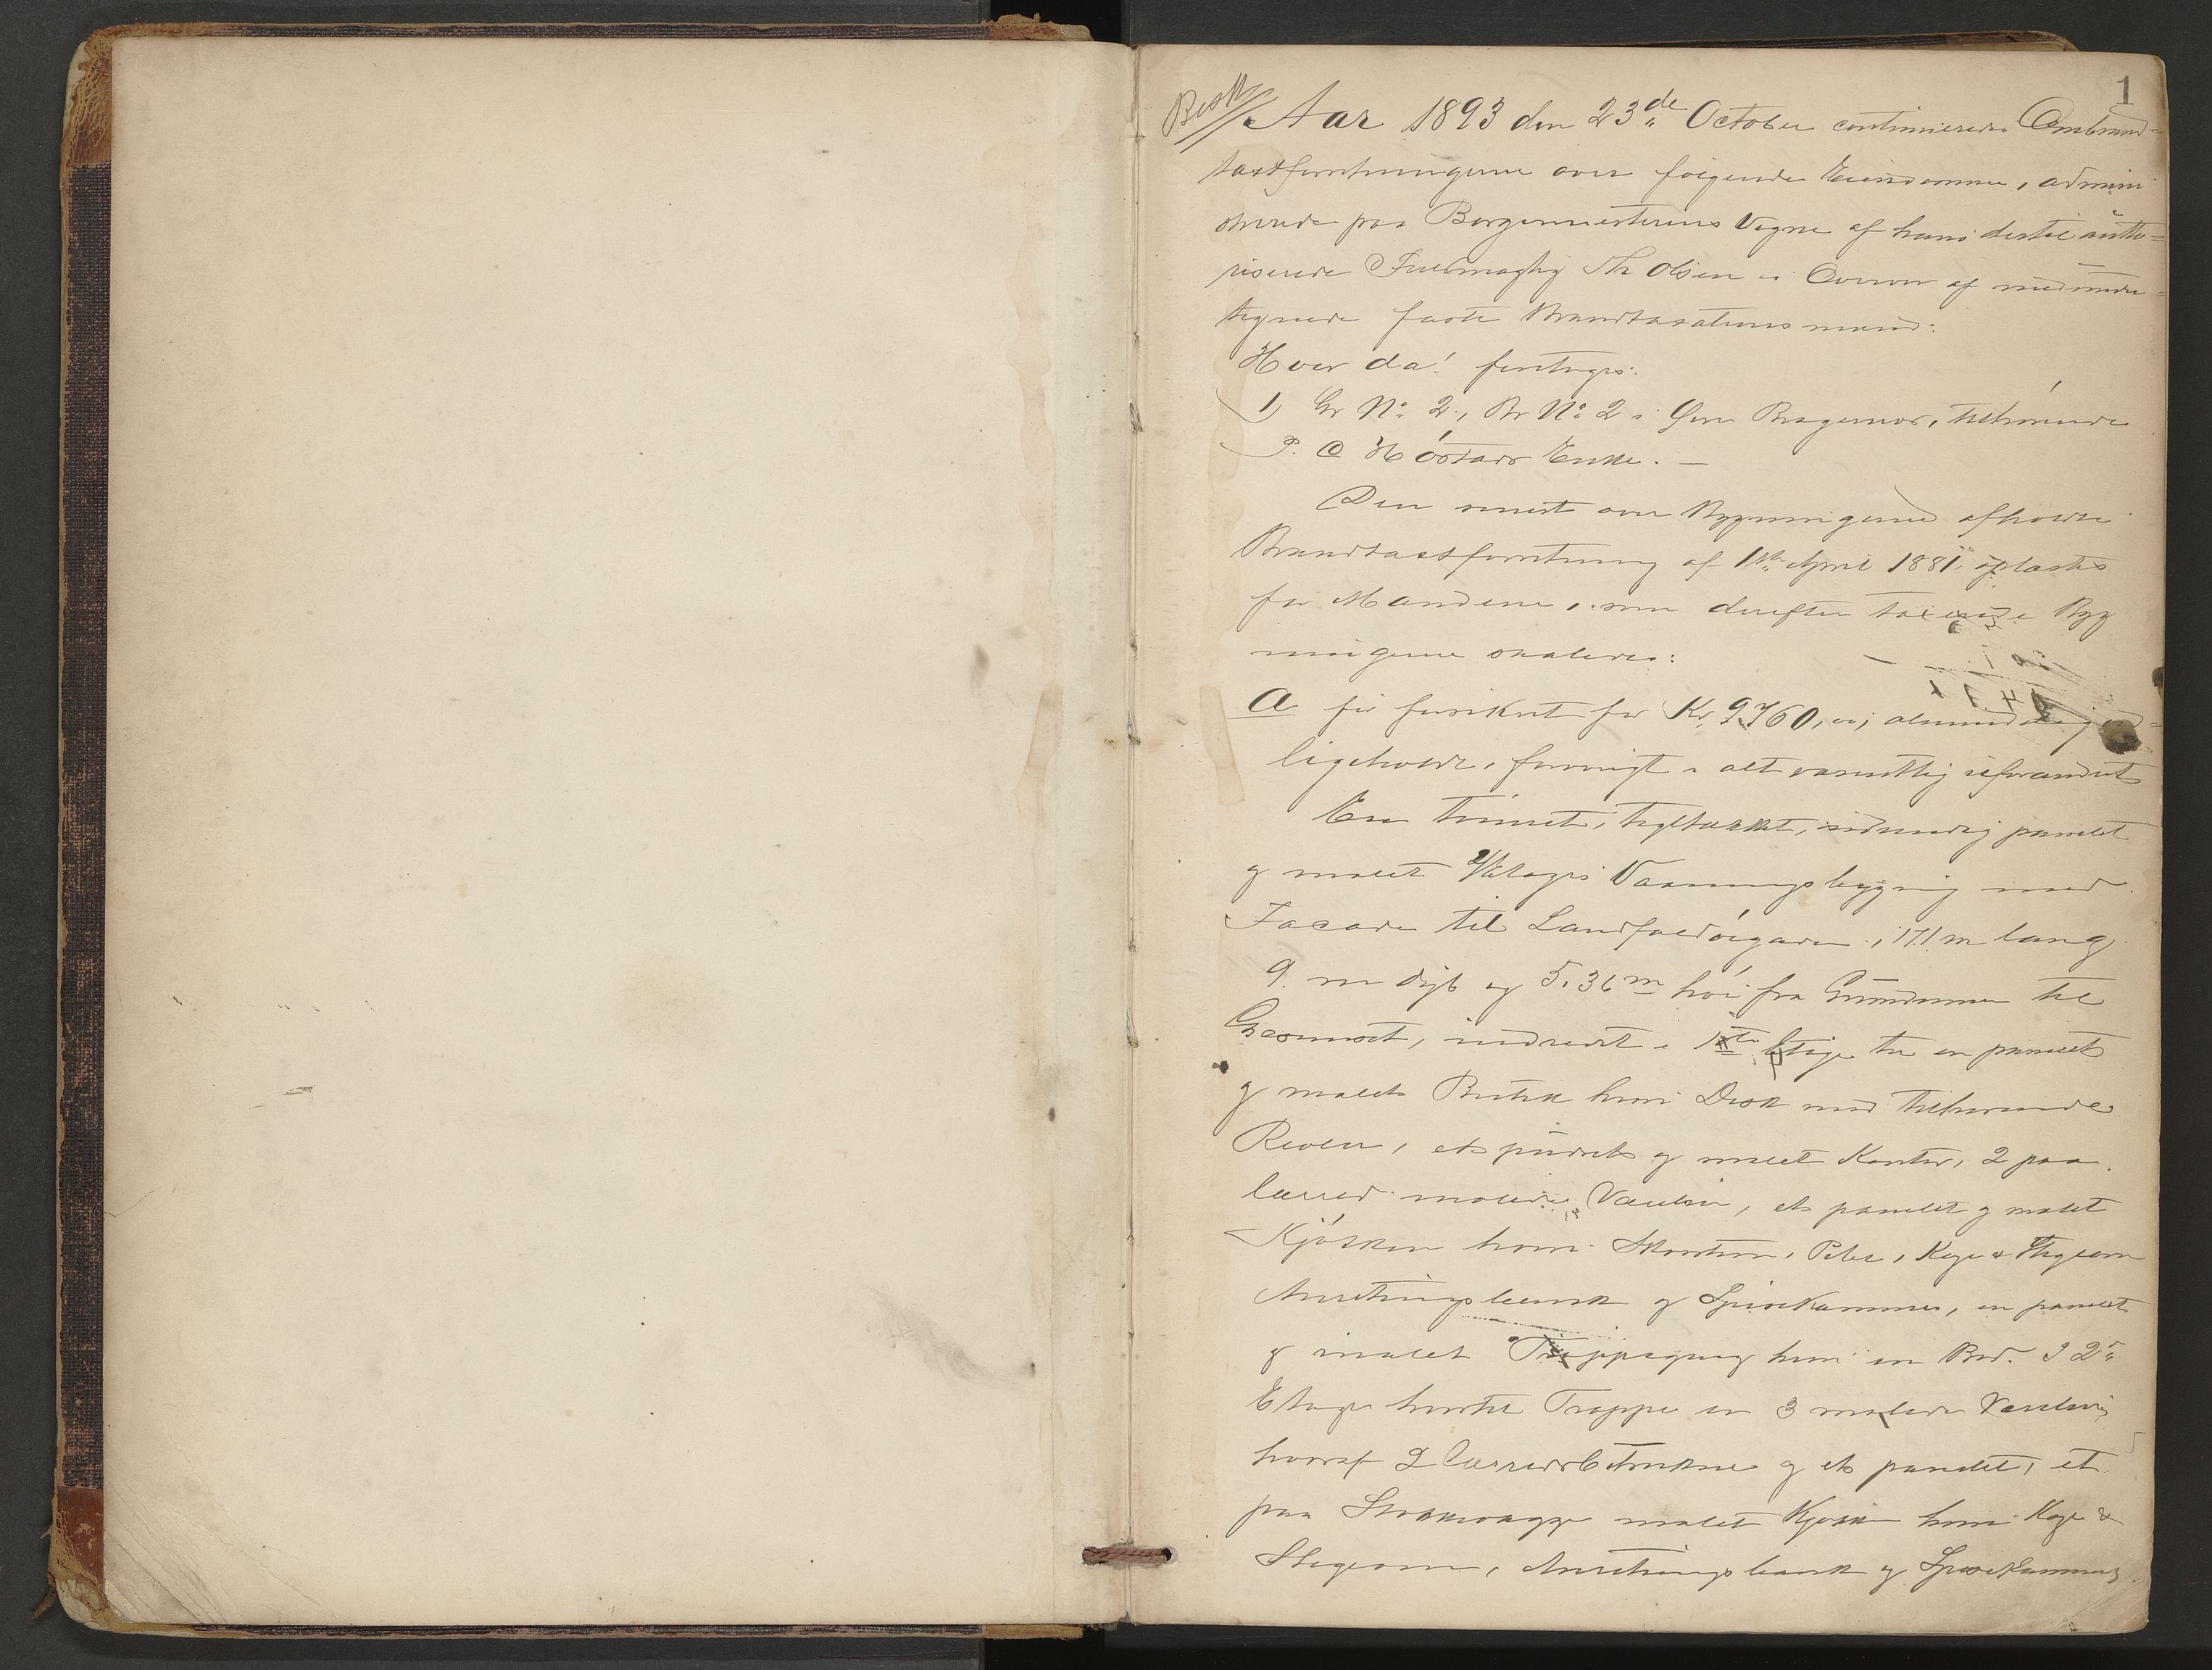 1
Besk
Aar 1893 den 23de October continueredes Ombrand-
taxtforretningerne over følgende Eiendomme, admini
strerede paa Borgermesterens Vegne af hans dertil autho-
riserede Fuldmægtig Th Olsen i Overvær af medunder-
tegnede faste Brandtaxationsmænd:
Hvor da! foretoges:
1) Gr No 2, Br No 2 i Øvre Bragernes, tilhørende
P. O Høstads Enke. —
Den senest over Bygningerne afholdte
Brandtaxtforretning af 1ste April 1881 oplæstes
for Mændene, som derefter taxerede Byg
ningerne saaledes:
a før forsikret for Kr. 9760, er, almindelig ved-
ligeholdt, forøvrigt i alt væsentlig uforandret
En tømret, tegltækket, udvendig panelet
og malet 2 Etages Vaaningsbygning med
Facade til Landfaldøigaden, 17.1 m lang
9. m dyb og 5.36 m høi fra Grundmuren til
Gesimset, indredet i 1ste Etage til en panelet
og malet Butik hvori Disk med tilhørende
Reoler, et pudset og malet Kontor, 2 paa
lærred malede Værelser, et panelet og malet
Kjøkken hvori Skorsten, Pibe, Koge & Stegeovn
Anretningsbænk og Spisekammer, en panelet
og malet Trappegang hvori en Bod. I 2den
Etage hvortil Trappe er 3 malede Værelser,
hvoraf 2 lærredsbetrukne og et panelet, et
paa Stokkevægge malet Kjøkken hvori Koge &
Stegeovn, Anretningsbænk og Spisekammer,